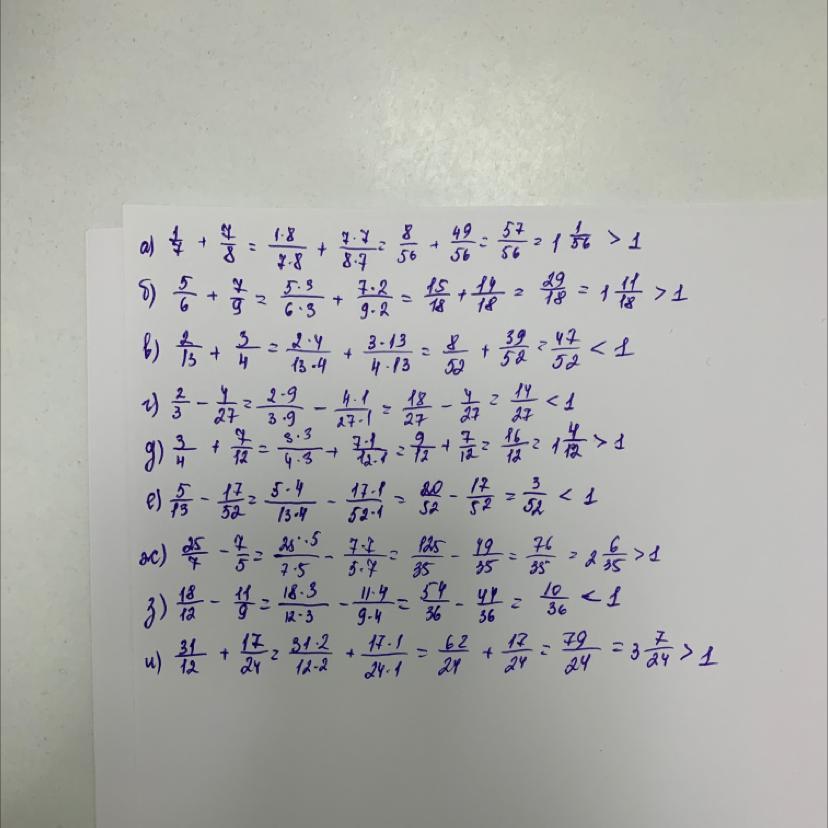 а) 1/7 + 7/8 = 1·8/7·8 + 7·7/8·7 = 8/56 + 49/56 = 57/56 = 1 1/56 > 1
б) 5/6 + 7/9 = 5·3/6·3 + 7·2/9·2 = 15/18 + 14/18 = 29/18 = 1 11/18 > 1
в) 2/13 + 3/4 = 2·4/13·4 + 3·13/4·13 = 8/52 + 39/52 = 47/52 < 1
г) 2/3 - 4/27 = 2·9/3·9 - 4·1/27·1 = 18/27 - 4/27 = 14/27 < 1
д) 3/4 + 7/12 = 3·3/4·3 + 7·1/12·1 = 9/12 + 7/12 = 16/12 = 1 4/12 > 1
е) 5/13 - 17/52 = 5·4/13·4 - 17·1/52·1 = 20/52 - 17/52 = 3/52 < 1
ж) 25/7 - 7/5 = 25·5/7·5 - 7·7/5·7 = 125/35 - 49/35 = 76/35 = 2 6/35 > 1
з) 18/12 - 11/9 = 18·3/12·3 - 11·4/9·4 = 54/36 - 44/36 = 10/36 < 1
и) 31/12 + 17/24 = 31·2/12·2 + 17·1/24·1 = 62/24 + 17/24 = 79/24 = 3 7/24 > 1